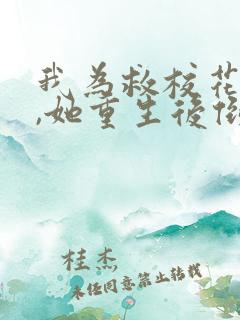 我為救校花
,她重生後
桂杰
未经同意禁止转载